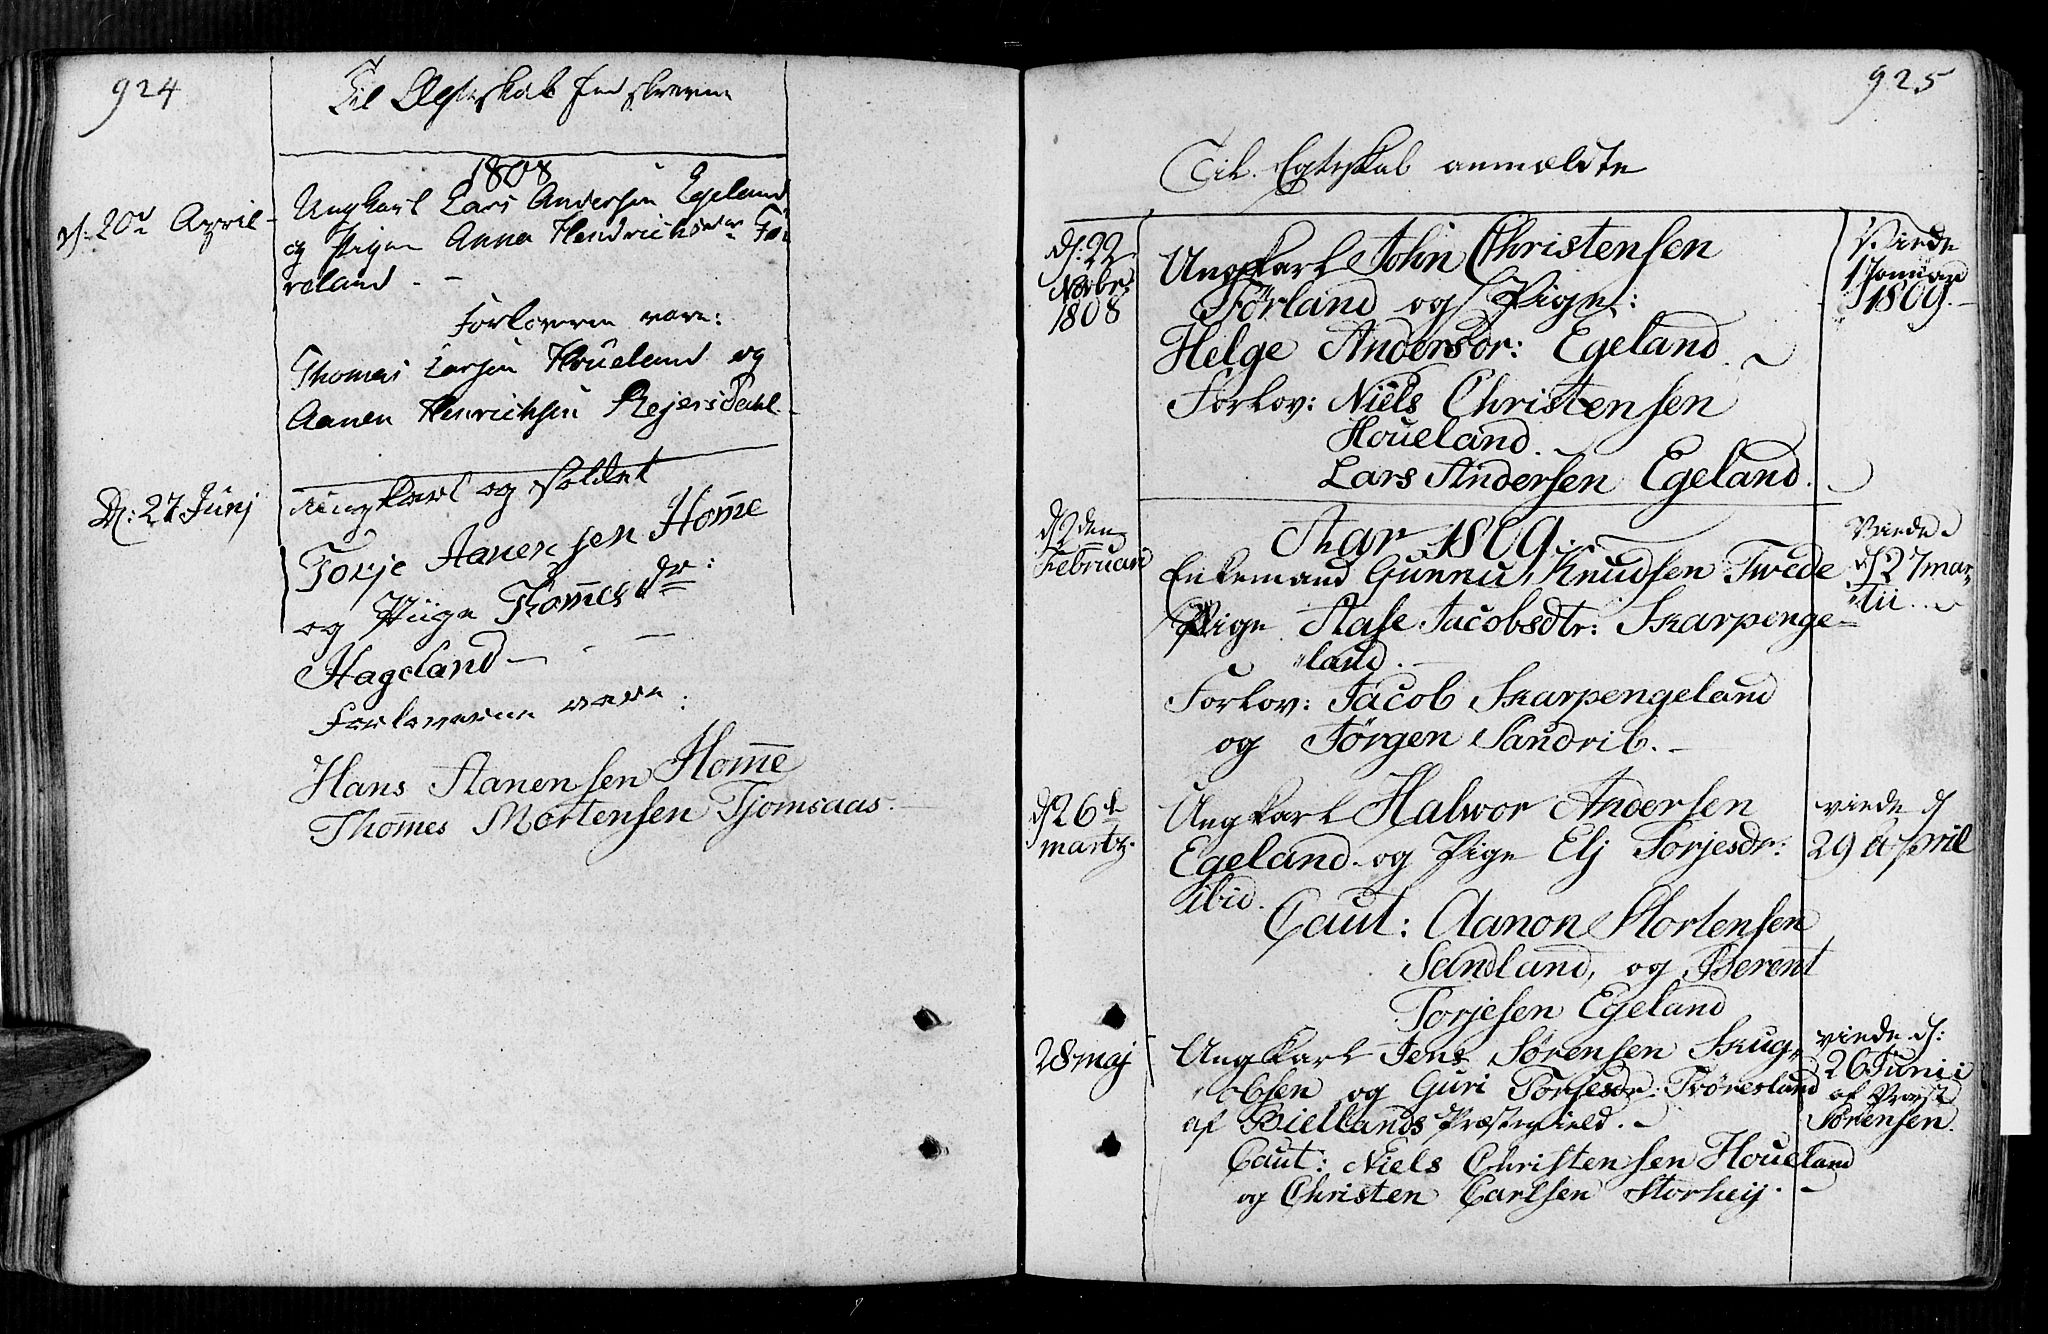 924
Til Ægteskab indskrevne
1808
d: 20de April
Ungkarl Lars Andersen Egeland
og Pigen Anna Hendrichsdtr
reland. —
Forloverne vare:
Thomas Larsen Houeland og
Aanen Henrichsen Rejersdahl.
D: 27 Junj
Ungkarl og Soldat
Torje Aanensen Home
og Piige Thomesdr:
Hageland —
Forloverne vare:
Hans Aanensen Home
Thomes Mortensen Tjomsaas.
925
Til Egteskab anmældte
d: 22
Novbr:
1808
Ungkarl John Christensen
Förland og Pige:
Helge Andersdr: Egeland.
Forlov: Niels Christensen
Houeland.
Lars Andersen Egeland.
Viede
1 Januar
1809.
Aar 1809.
d 2den
Februari
Enkemand Gunnu Knudsen Twede
Pige Aase Jacobsdtr: Skarpenge-
land.
Forlov: Jacob Skarpengeland
og Jörgen Sandrib.
Viede
d 27 mar-
tii.
d 26de
martz.
Ungkarl Halwor Andersen
Egeland og Pige Elj Torjesdr:
ibid.
Caut: Aanon Mortensen
Sandland, og Berent
Torjesen Egeland
viede d
29 April
28 maj
Ungkarl Jens Sörensen Skug-
olsen og Guri Torjesdr: Tröneslund
af Biellands Præstegield.
Caut: Niels Christensen Houeland
og Christen Carlsen Storheij.
viede d:
26 Junii
af Præst
Sörensen.